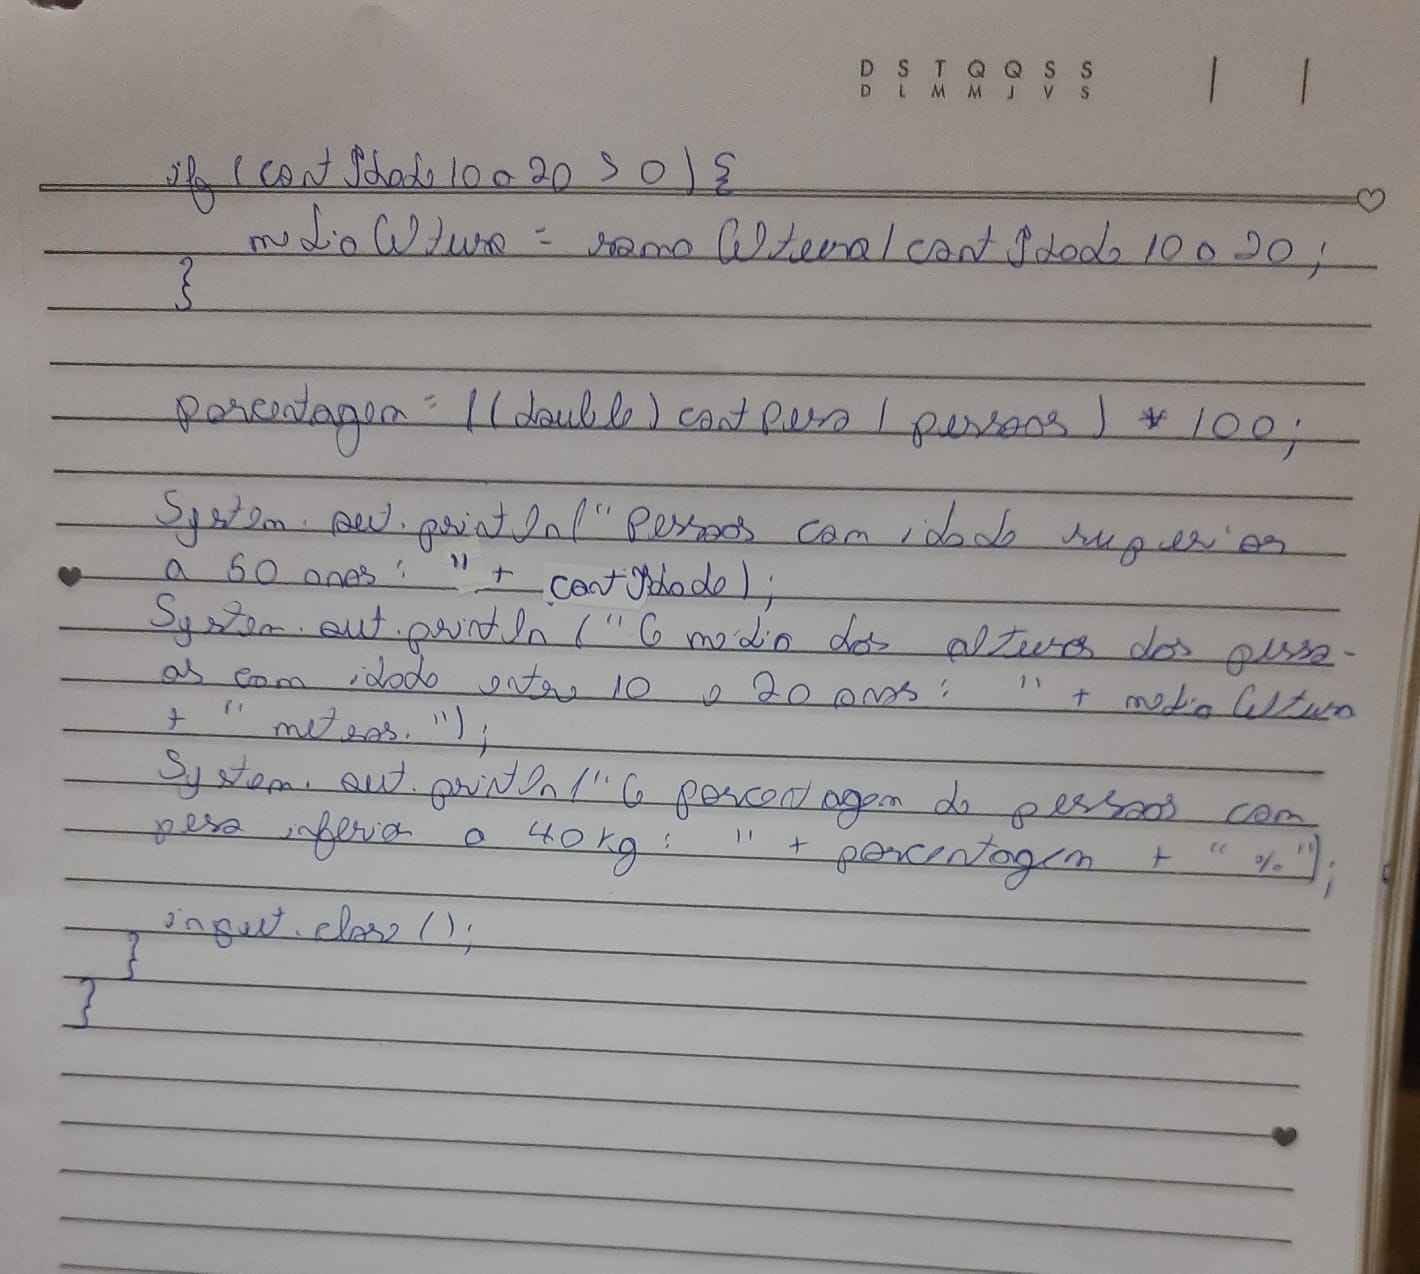 D S T Q Q S S
D L M M J V S
if (contIdade10a20 > 0) {
mediaAltura = somaAltura / contIdade10a20;
}
porcentagem = ((double) contPeso / pessoas) * 100;
System.out.println("Pessoas com idade superior
a 50 anos: " + contIdade);
System.out.println("A media das alturas das pesso-
as com idade entre 10 e 20 anos: " + mediaAltura
+ " metros.");
System.out.println("A porcentagem de pessoas com
peso inferior a 40kg: " + porcentagem + " %");
input.close();
}
}